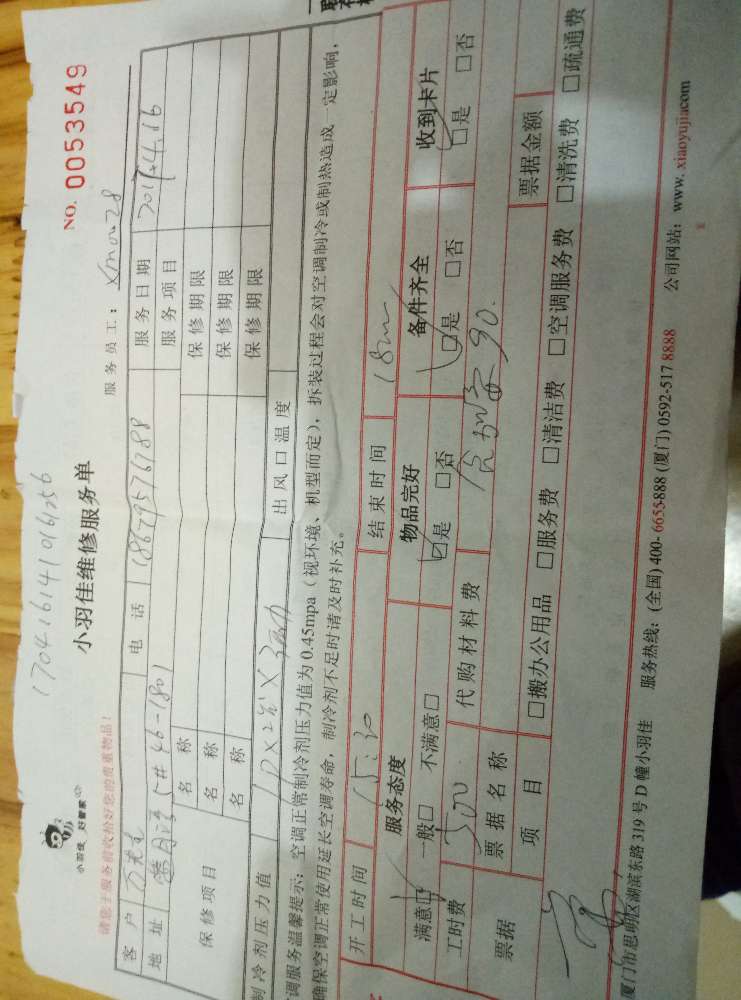 NO. 0053549
170416141016256
小羽佳 好管家
小羽佳维修服务单
服务员工： xmon28
请您于服务前收拾好您的贵重物品！
客户 电话 18679576788 服务日期 2017.4.16
地址 46-1801 服务项目
保修项目 名称 保修期限
名称 保修期限
名称 保修期限
制冷剂压力值 出风口温度
调服务温馨提示：空调正常制冷剂压力值为0.45mpa（视环境、机型而定），拆装过程会对空调制冷或制热造成一定影响，
确保空调正常使用延长空调寿命，制冷剂不足时请及时补充。
开工时间 15:30 结束时间
服务态度 物品完好 备件齐全 收到卡片
满意□ 一般□ 不满意□ □是 □否 □是 □否 □是 □否
工时费 500 代购材料费 90.
票据 票据名称 票据金额
项目 □搬办公用品 □服务费 □清洁费 □空调服务费 □清洗费 □疏通费
厦门市思明区湖滨东路319号D幢小羽佳 服务热线：(全国)400-6655-888 (厦门)0592-517 8888 公司网站：www.xiaoyujia.com